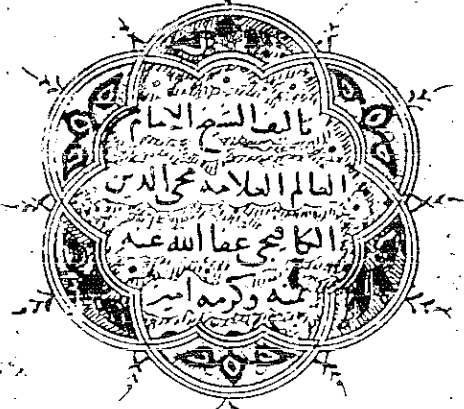 تاليف الشيخ الامام
العالم العلامة محي الدين
الكافيجي عفا الله عنه
بمنه وكرمه امين